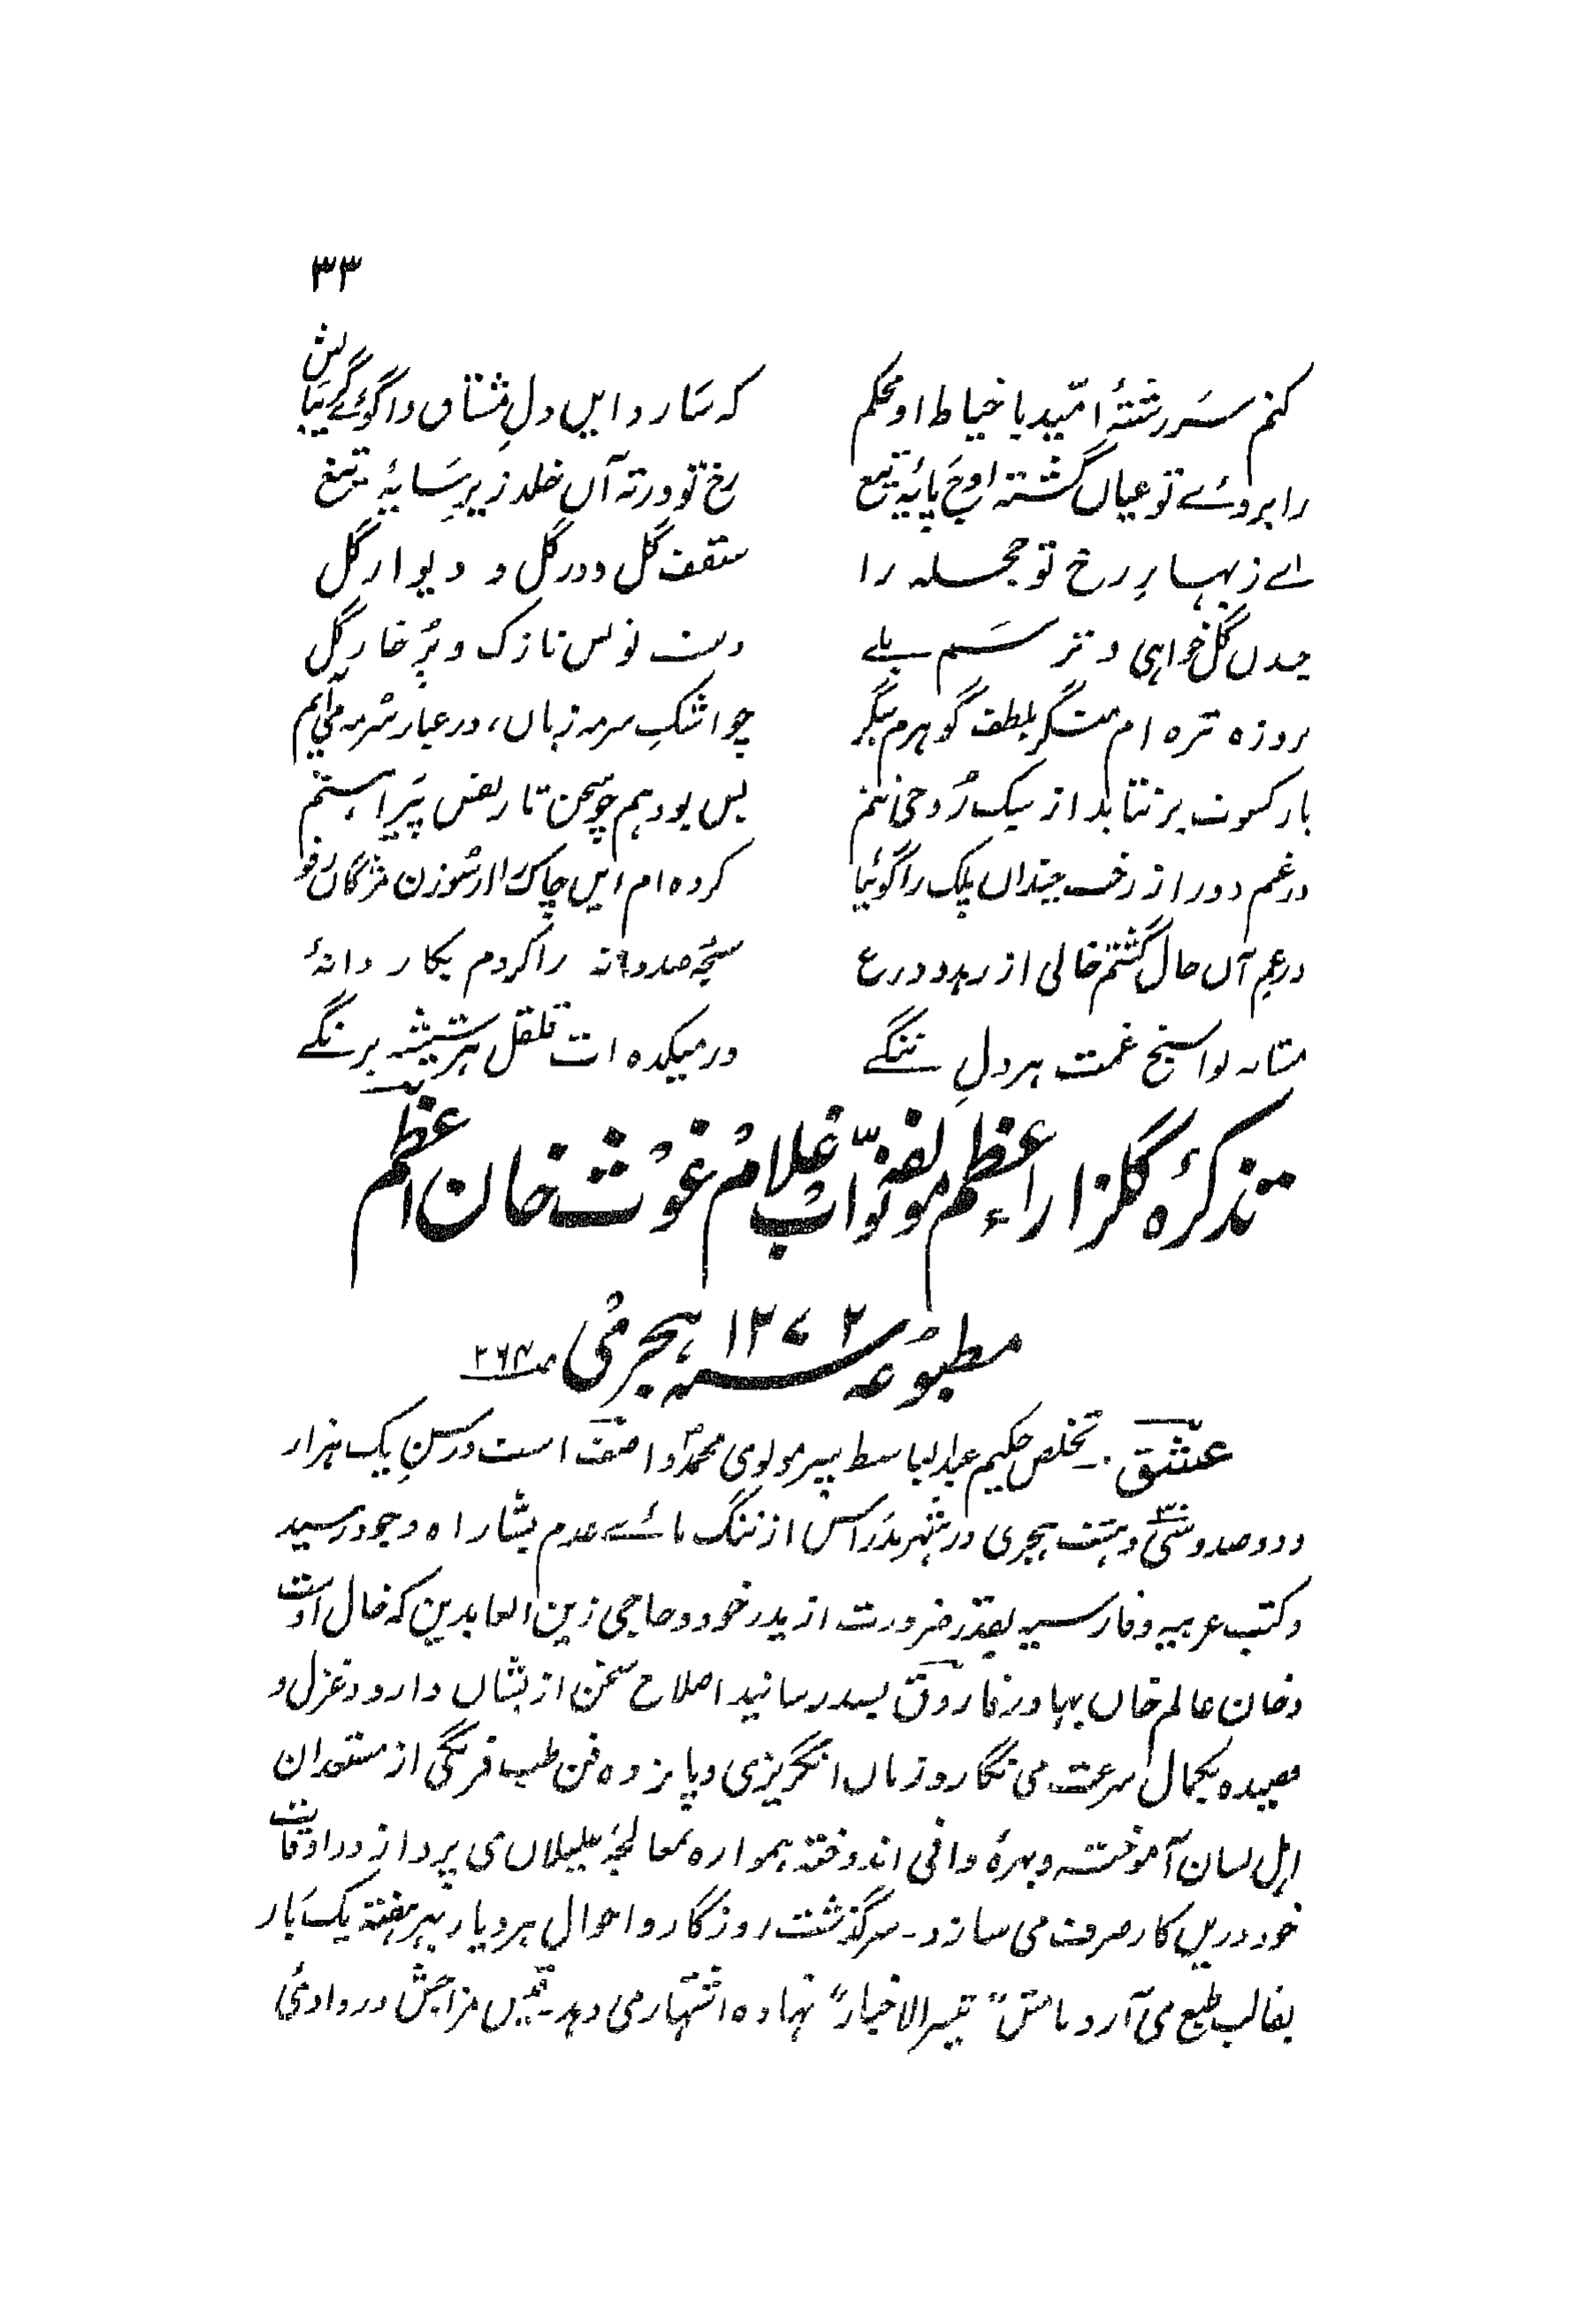 ۳۳
کنم سررشتۂ امّید با خیاط او محکم که سازد ایں دلِ مشتاق را گوئے گریبانش
را بروئے تو عیاں گشته اوجِ پایۂ تیغ رخ تو در ته آں خلد زیرِ سایۂ تیغ
اے ز بہارِ رخ تو جمله را سقف گل و در گل و دیوار گل
چیدن گل خواہی و ترسم بلے دست تو بس نازک و پُر خار گل
روزه تیره ام منگر بلطف گوہرم بنگر چو اشکِ سرمه زباں، در غبار سُرمه می آیم
بار کسوت بر نتابد از سبک رُوحی تنم بس بود ہم چو سخن تار نفس پیراہنم
در غم دور از رخت چنداں پلک را گوئیا کرده ام ایں چاک را از سُوزن مژگاں رفو
در غم آں خال گشتم خالی از زہد و ورع سبحۂ صد دانه را کردم بکار دانۂ
مستانه نوا سنج غمت ہر دلِ تنگے در میکده ات قلقل ہر شیشه برنگے
تذکرۂ گلزار اعظم مولفہ نوّاب غلام غوث خان اعظم
مطبوعه سنه ۱۲۷۲ ہجری ص ۲۶۴
عشق۔ تخلص حکیم عبدالباسط پسر مولوی محمد واصف است در سنِ یک ہزار
و دو صد و سی و ہشت ہجری در شہر مدراس از تنگنائے عدم بشاراه وجود رسید
و کتب عربیه و فارسیه بقدر ضرورت از پدر خود و حاجی زین العابدین که خال اوست
و خان عالم خاں بہادر فاروق بسند رسانید اصلاح سخن از یشاں دارد و غزل و
قصیده بکمال سرعت می نگارد و زباں انگریزی و پانزده فن طب فرنگی از مستعدان
اہل لسان آموخته و بہرۂ وافی اندوخته ہمواره بمعالجۂ علیلاں می پردازد و اوقات
خود دریں کار صرف می سازد۔ سرگذشت روزگار و احوال ہر دیار بہر ہفته یک بار
بقالب طبع می آرد و نامش "تیسیر الاخبار" نہاده اشتہار می دہد۔ قیس مزاجش در وادئ